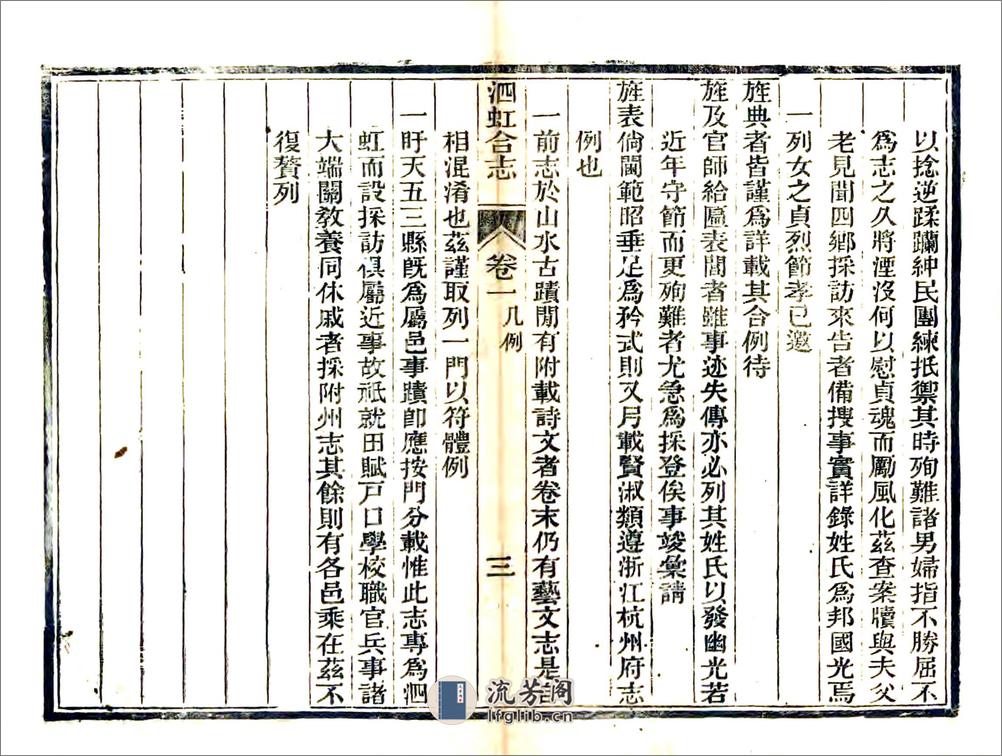 以捻逆蹂躝紳民團練抵禦其時殉難諸男婦指不勝屈不
爲志之久將湮沒何以慰貞魂而勵風化茲查案牘與夫父
老見聞四鄉採訪來告者備搜事實詳錄姓氏爲邦國光焉
一列女之貞烈節孝已邀
旌典者皆謹爲詳載其合例待
旌及官師給匾表閭者雖事迹失傳亦必列其姓氏以發幽光若
近年守節而更殉難者尤急爲採登俟事竣彙請
旌表倘閫範昭垂足爲矜式則又另載賢淑類遵浙江杭州府志
例也
一前志於山水古蹟閒有附載詩文者卷末仍有藝文志是
泗虹合志
卷一
凡例
三
相混淆也茲謹取列一門以符體例
一盱天五三縣旣爲屬邑事蹟卽應按門分載惟此志專爲泗
虹而設採訪俱屬近事故祗就田賦戸口學校職官兵事諸
大端關敎養同休戚者採附州志其餘則有各邑乘在茲不
復贅列
流芳閣
lfglib.cn